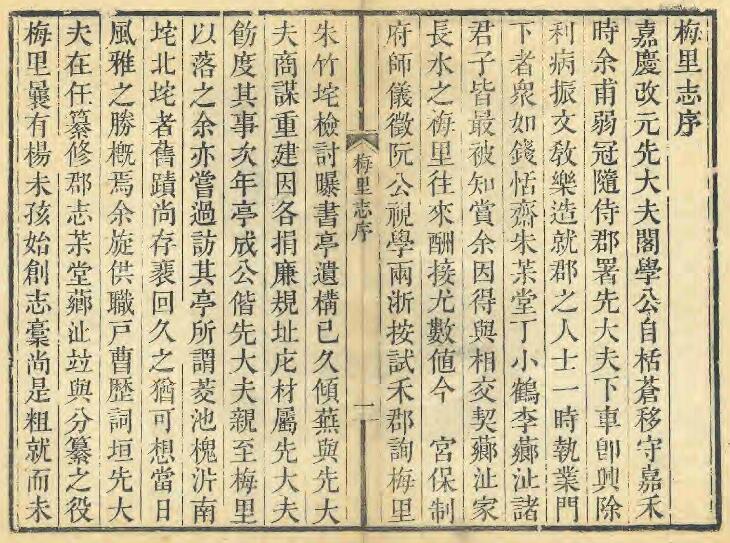 梅里志序
嘉慶改元先大夫閣學公自栝蒼移守嘉禾
時余甫弱冠隨侍郡署先大夫下車卽興除
利病振文敎樂造就郡之人士一時執業門
下者衆如錢恬齋朱茮堂丁小鶴李薌沚諸
君子皆最被知賞余因得與相交契薌沚家
長水之梅里往來酬接尤數値今　宮保制
府師儀徵阮公視學兩浙按試禾郡詢梅里
梅里志序
一
朱竹垞檢討曝書亭遺構已久傾蕪與先大
夫商謀重建因各捐廉規址庀材屬先大夫
飭度其事次年亭成公偕先大夫親至梅里
以落之余亦嘗過訪其亭所謂菱池槐沜南
垞北垞者舊蹟尚存裵回久之猶可想當日
風雅之勝槪焉余旋供職戸曹歷詞垣先大
夫在任纂修郡志茮堂薌沚竝與分纂之役
梅里曩有楊未孩始創志槀尚是粗就而未